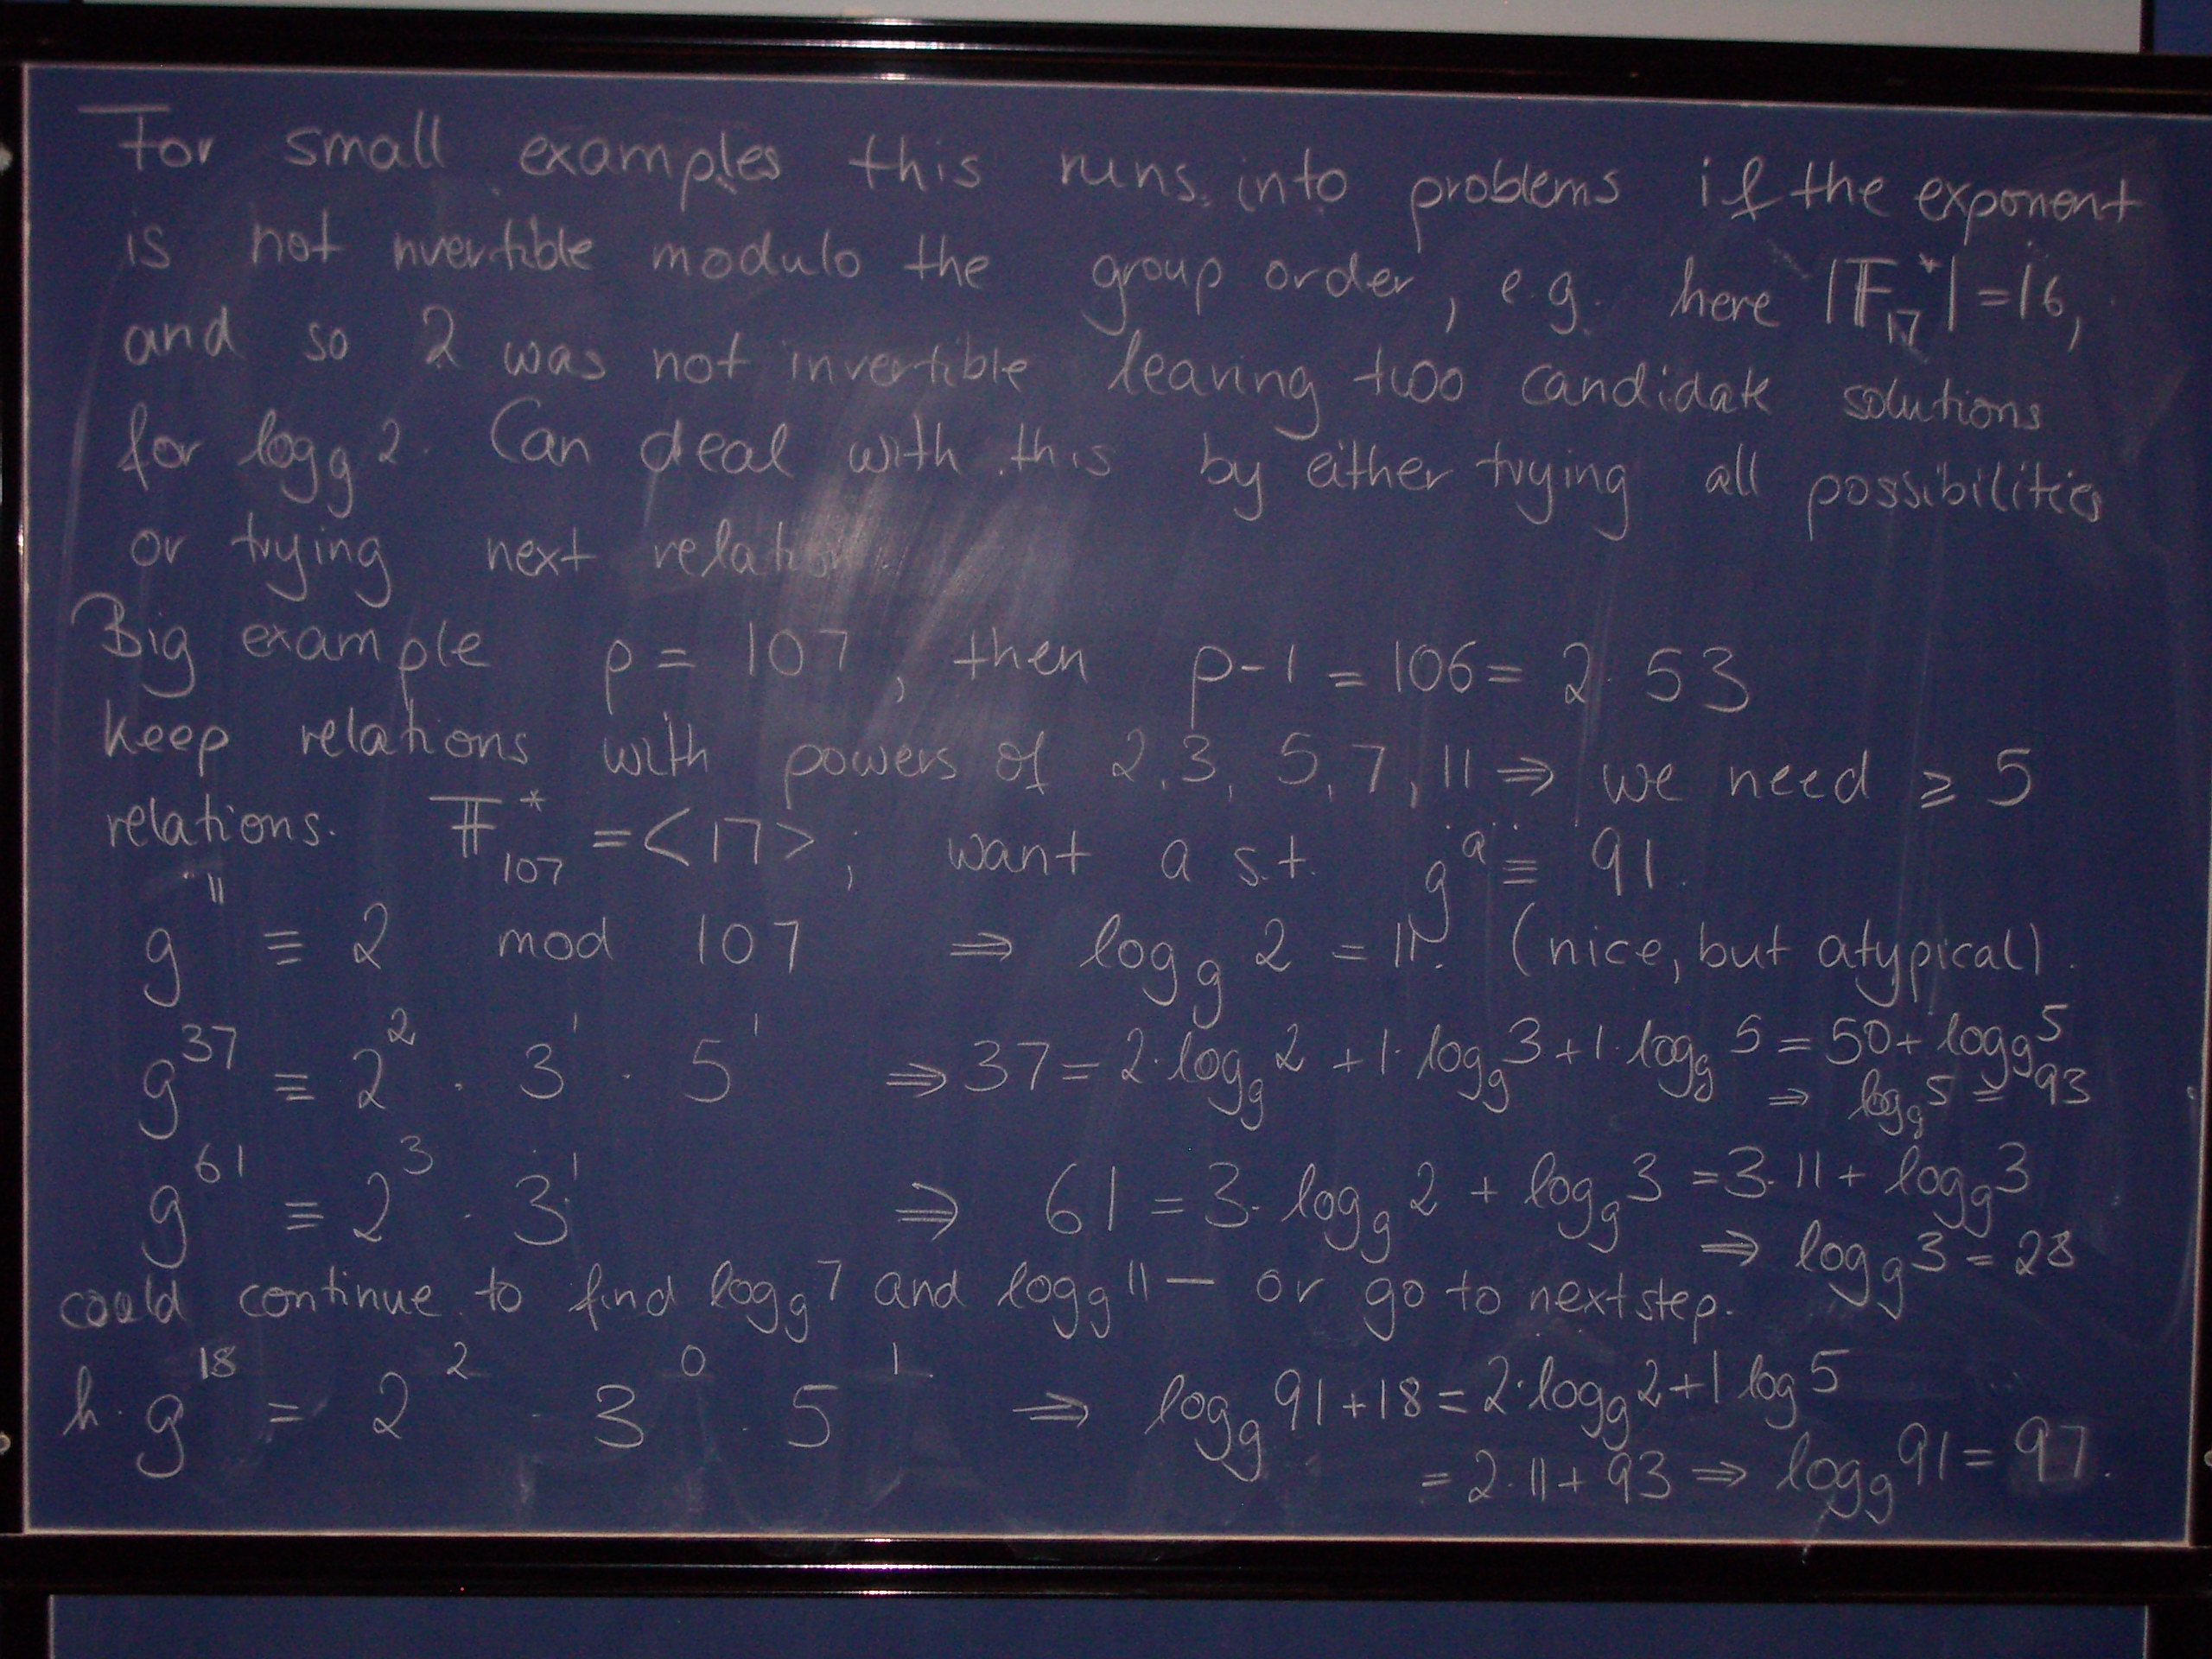 For small examples this runs into problems if the exponent
is not nvertible modulo the group order, e.g. here |𝔽₁₇*| = 16,
and so 2 was not invertible leaving two candidate solutions
for log_g 2. Can deal with this by either trying all possibilities
or trying next relation
Big example p = 107, then p-1 = 106 = 2·53
keep relations with powers of 2, 3, 5, 7, 11 ⇒ we need ≥ 5
relations. 𝔽₁₀₇* = <17>; want a s.t. g^a ≡ 91.
g^11 ≡ 2 mod 107 ⇒ log_g 2 = 11. (nice, but atypical).
g^37 ≡ 2^2 · 3^1 · 5^1 ⇒ 37 = 2·log_g 2 + 1·log_g 3 + 1·log_g 5 = 50 + log_g 5
⇒ log_g 5 = 93
g^61 ≡ 2^3 · 3^1 ⇒ 61 = 3·log_g 2 + log_g 3 = 3·11 + log_g 3
⇒ log_g 3 = 28
could continue to find log_g 7 and log_g 11 — or go to next step.
h·g^18 = 2^2 · 3^0 · 5^1 ⇒ log_g 91 + 18 = 2·log_g 2 + 1 log 5
= 2·11 + 93 ⇒ log_g 91 = 97.